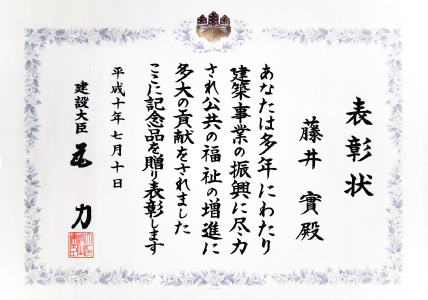 表彰状
藤井實殿
あなたは多年にわたり
建築事業の振興に尽力
され公共の福祉の増進に
多大の貢献をされました
ここに記念品を贈り表彰します
平成十年七月十日
建設大臣 瓦力